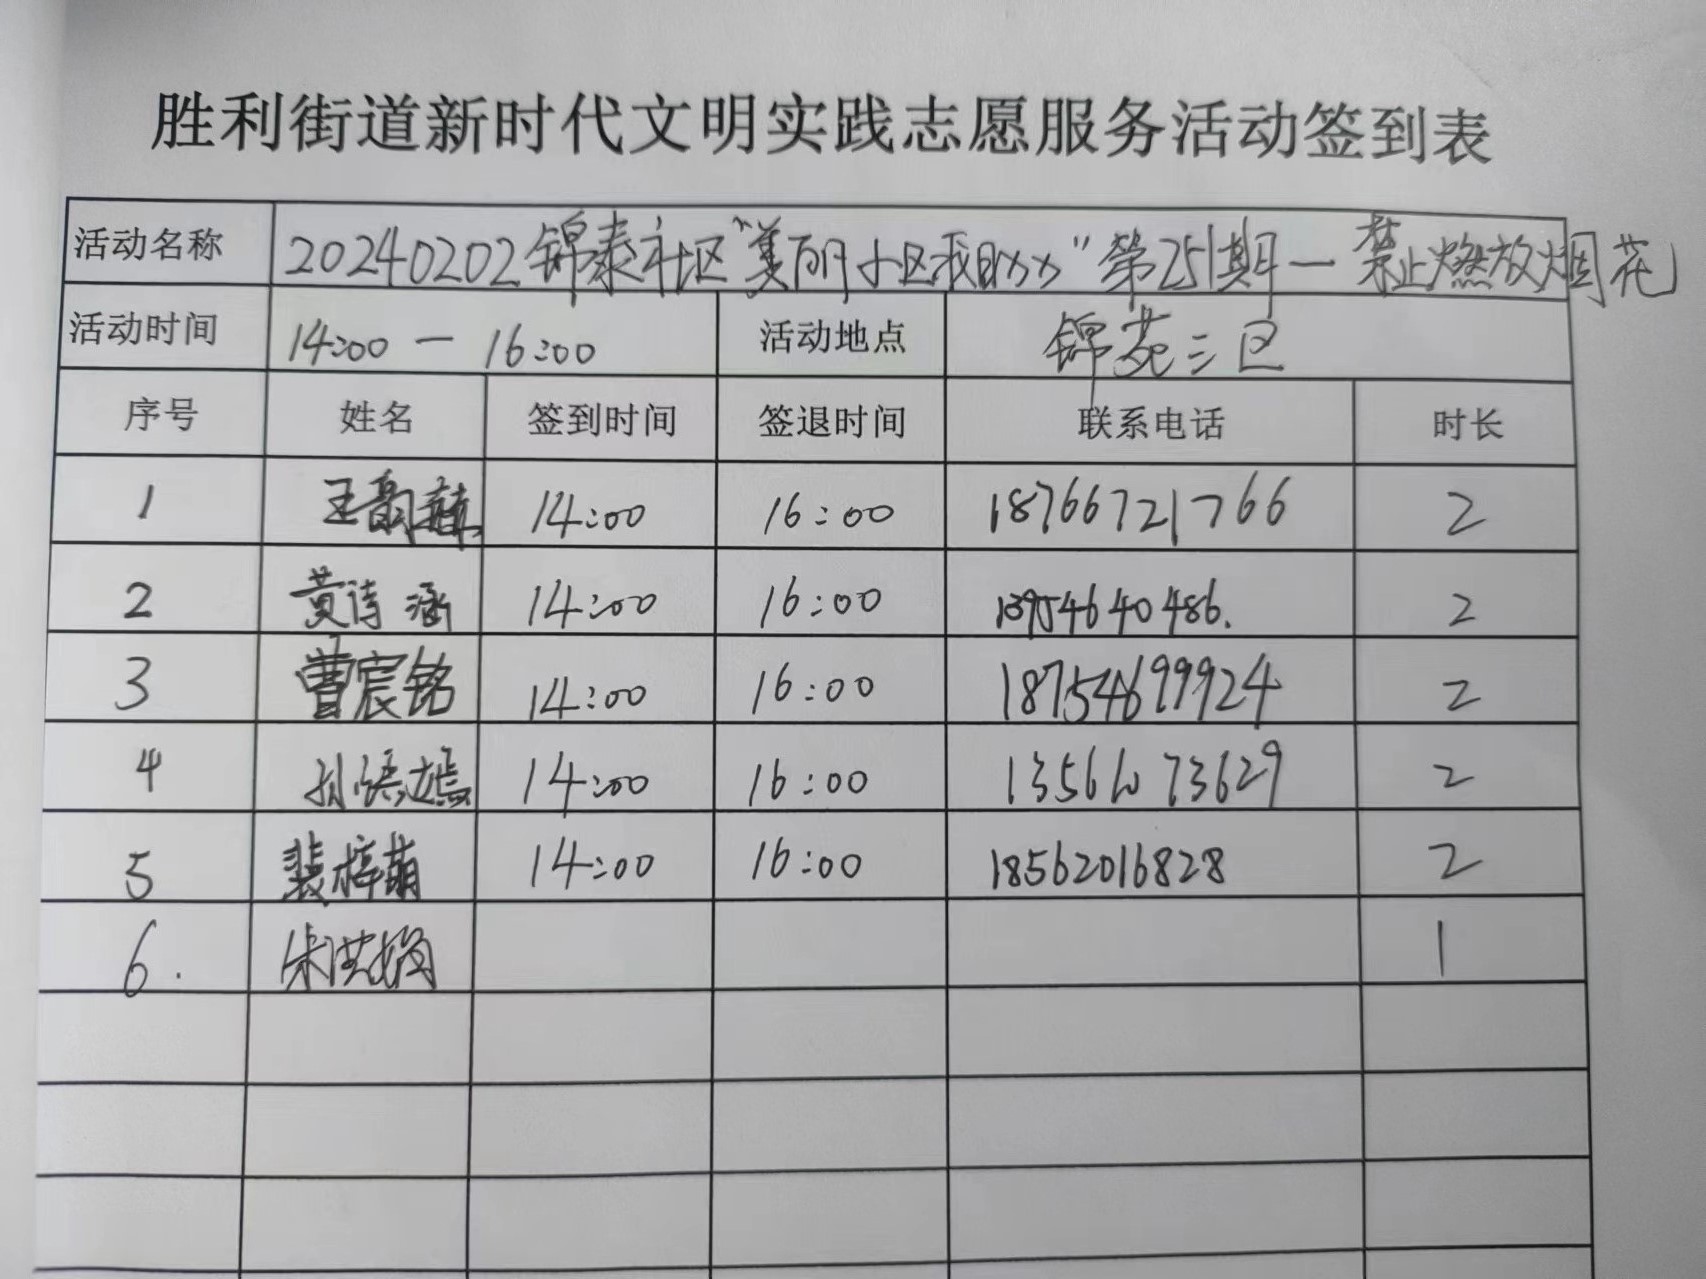 胜利街道新时代文明实践志愿服务活动签到表
活动名称 20240202锦泰社区“美丽小区我助力”第251期一禁止燃放烟花
活动时间 14:00 — 16:00 活动地点 锦苑三区
序号 姓名 签到时间 签退时间 联系电话 时长
1 王 14:00 16:00 18766721766 2
2 黄诗涵 14:00 16:00 13954640486. 2
3 曹宸铭 14:00 16:00 18754699924 2
4 孙 嫣 14:00 16:00 13561073629 2
5 裴梓萌 14:00 16:00 18562016828 2
6. 宋洪娟 1